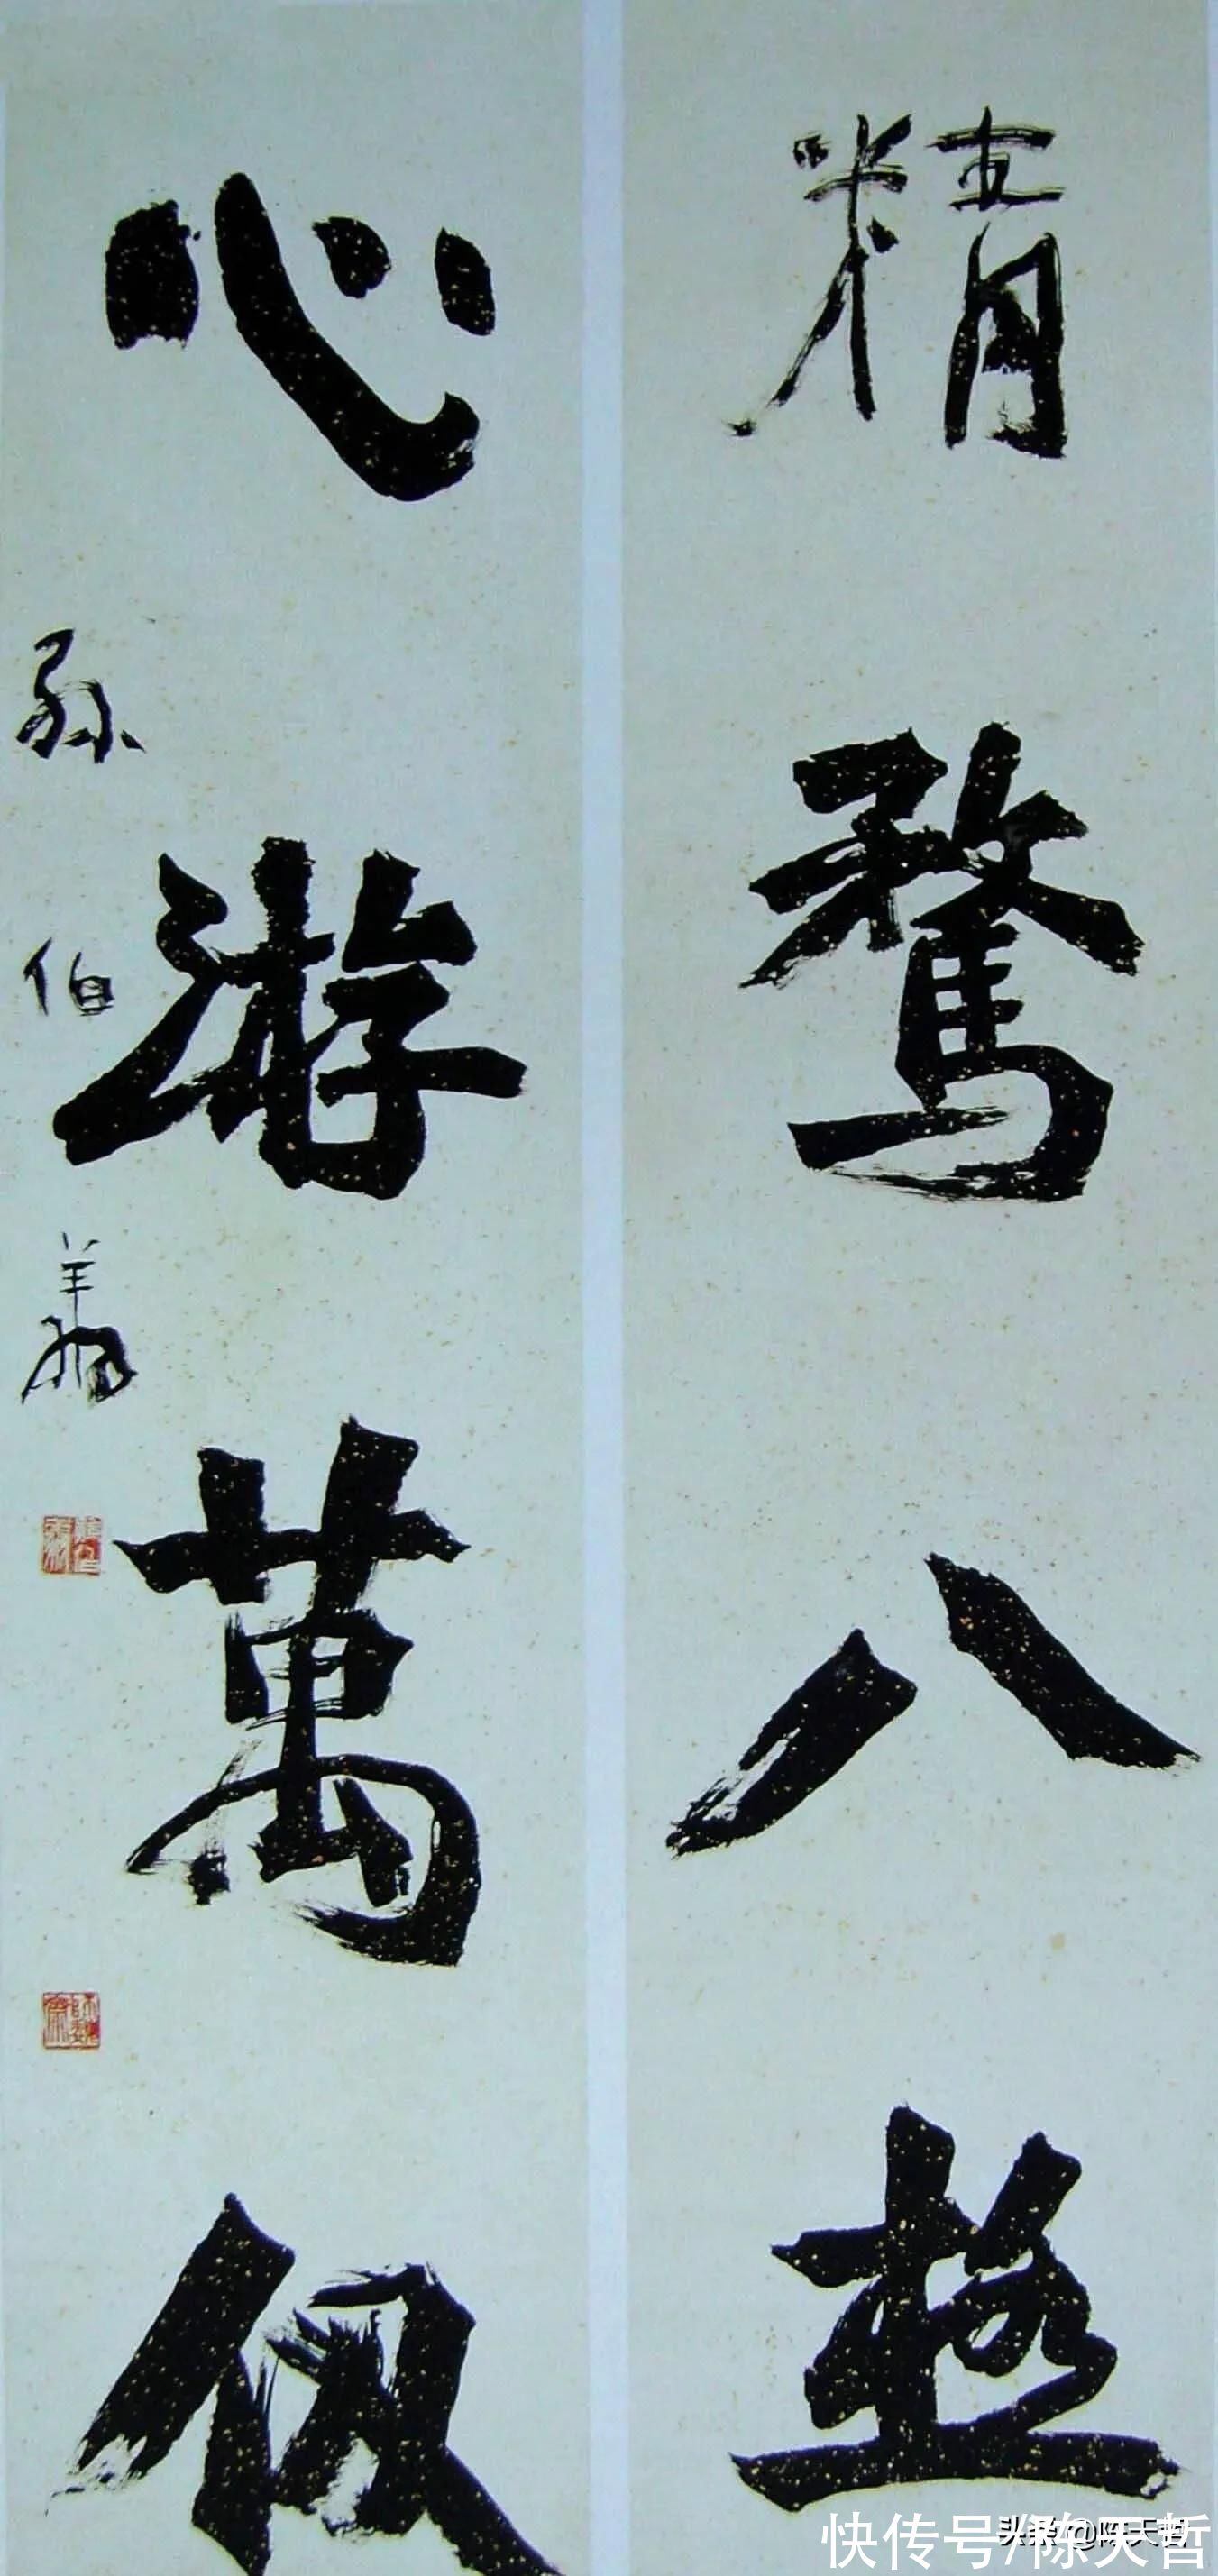 精骛八極
心游萬仞
孫伯翔
師魏齋
快传号/陈天哲
头条 @陈天哲